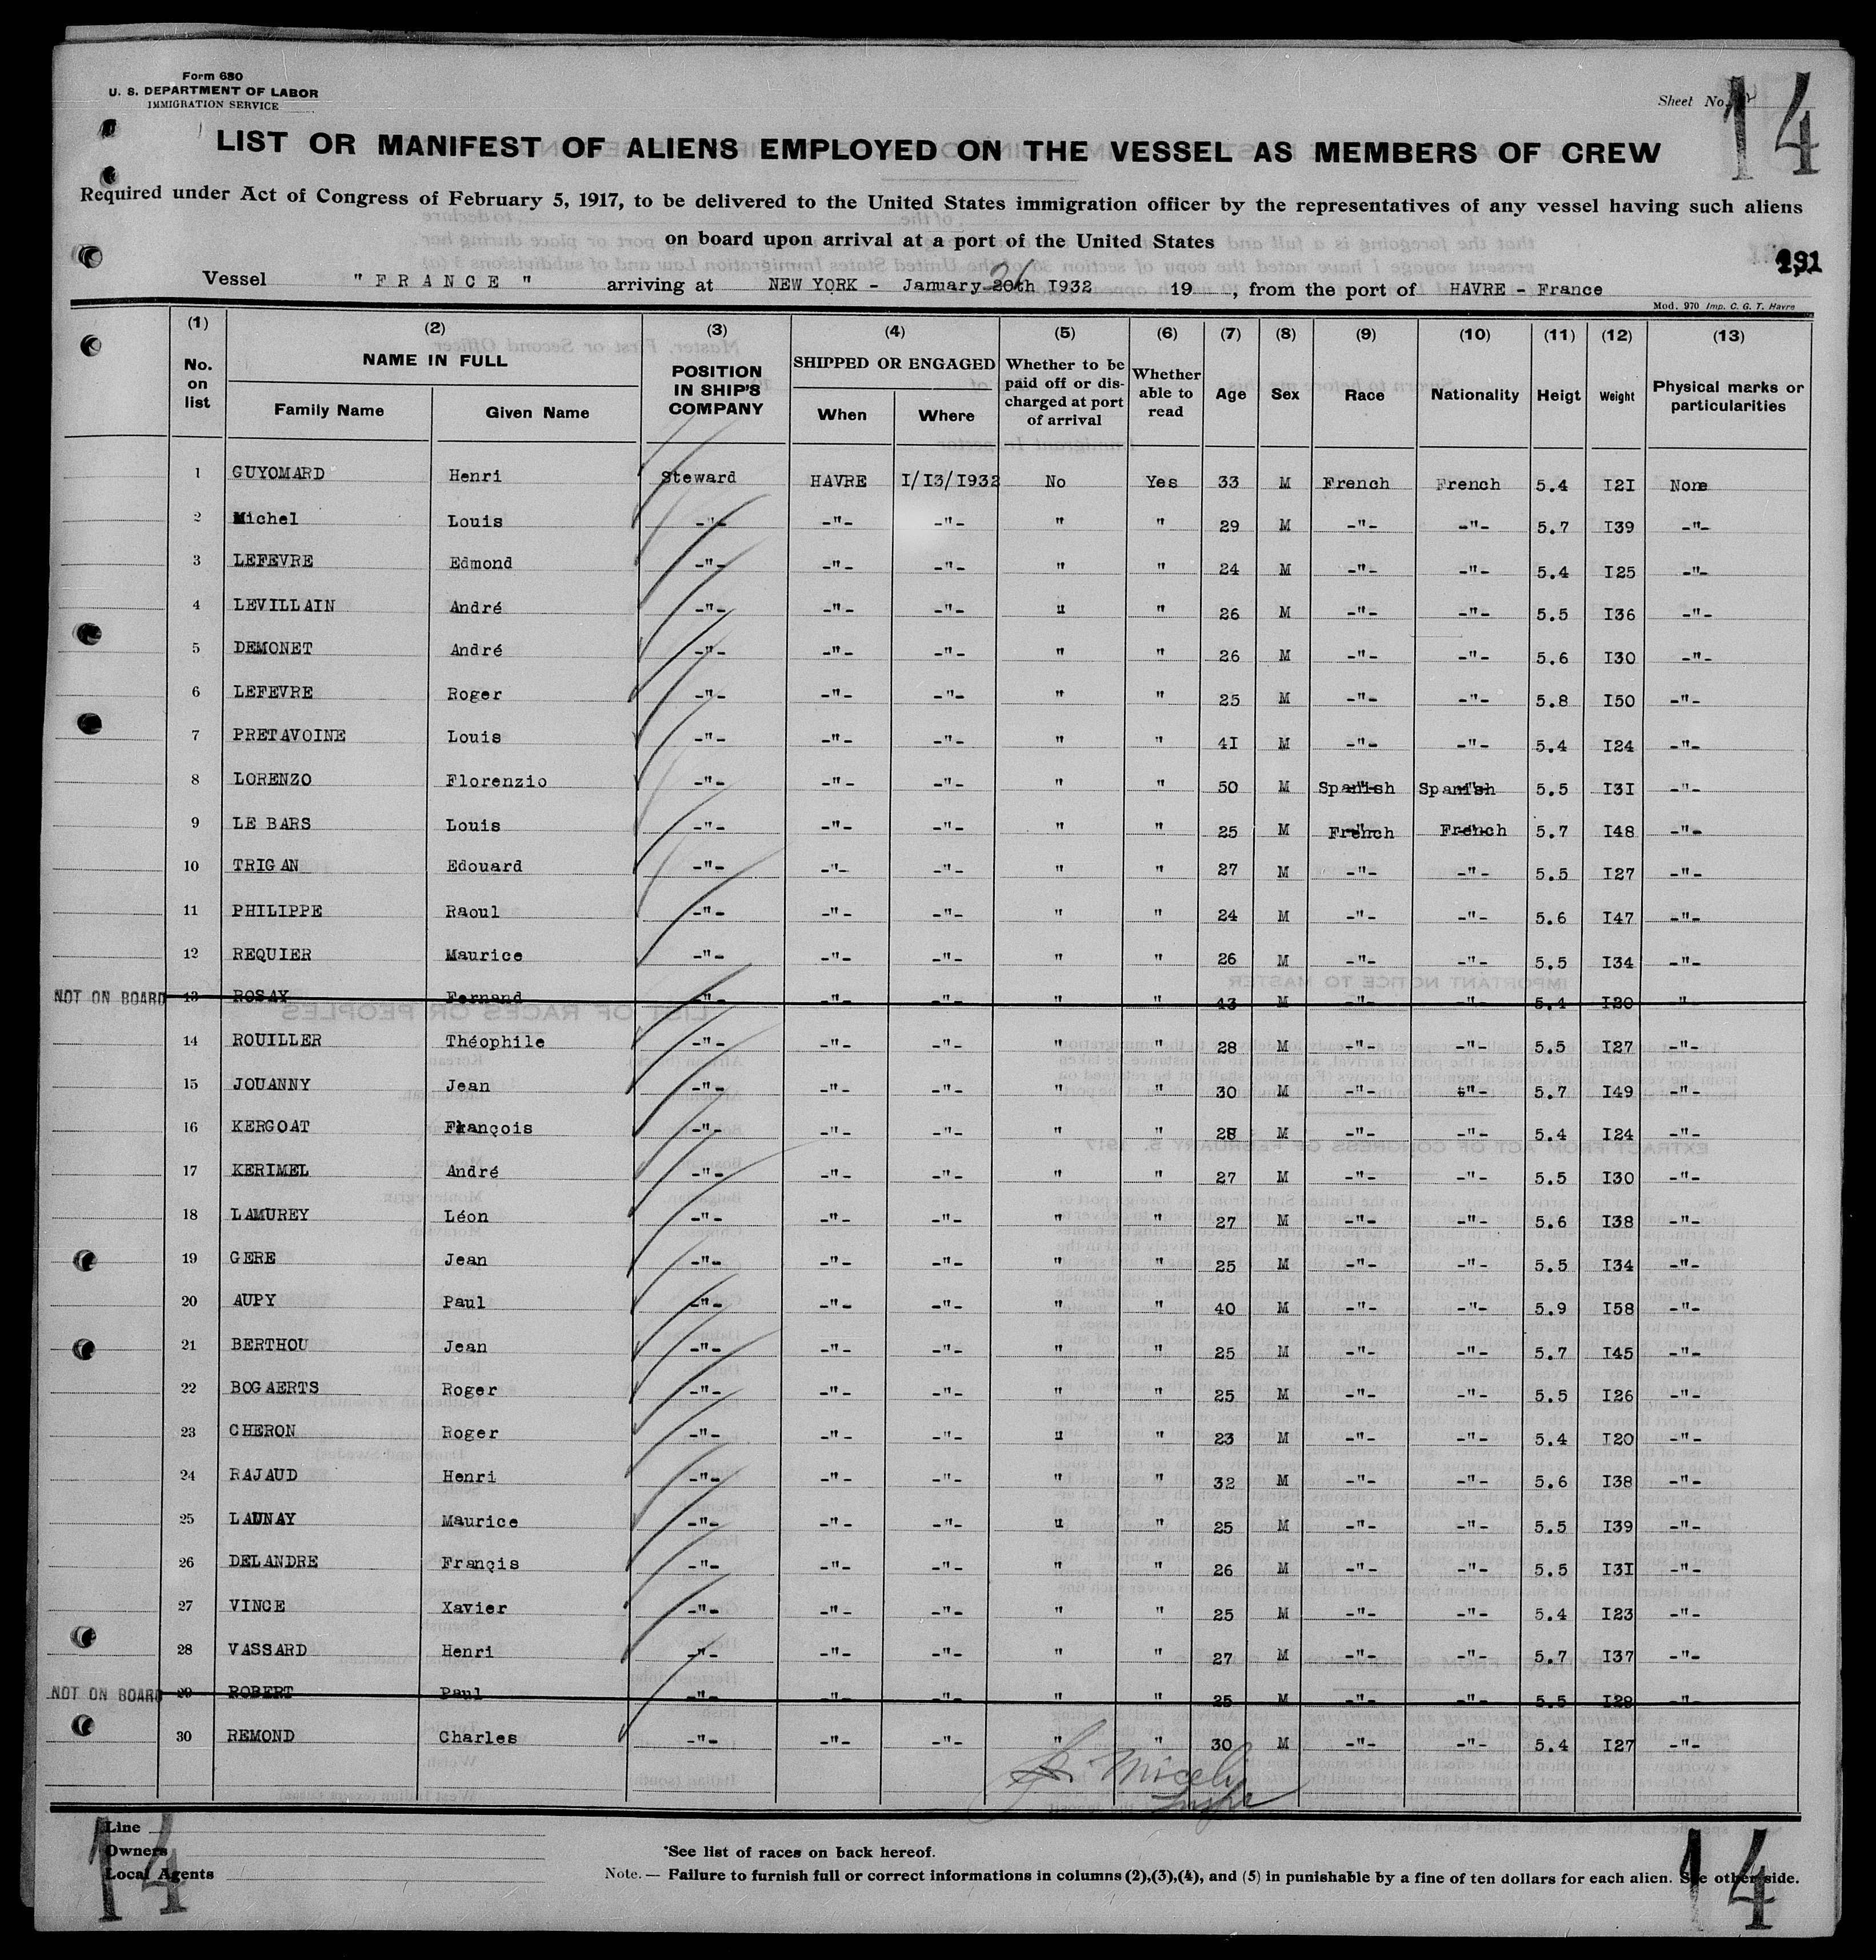 Form 680
U. S. DEPARTMENT OF LABOR
IMMIGRATION SERVICE
Sheet No.
14
LIST OR MANIFEST OF ALIENS EMPLOYED ON THE VESSEL AS MEMBERS OF CREW
Required under Act of Congress of February 5, 1917, to be delivered to the United States immigration officer by the representatives of any vessel having such aliens
on board upon arrival at a port of the United States
Vessel "FRANCE" arriving at NEW YORK - January 20th I932 19 , from the port of HAVRE - France
Mod. 970 Imp. C. G. T. Havre
(1) (2) (3) (4) (5) (6) (7) (8) (9) (10) (11) (12) (13)
No. on list NAME IN FULL POSITION IN SHIP'S COMPANY SHIPPED OR ENGAGED Whether to be paid off or discharged at port of arrival Whether able to read Age Sex Race Nationality Heigt Weight Physical marks or particularities
Family Name Given Name When Where
1 GUYOMARD Henri Steward HAVRE I/I3/I932 No Yes 33 M French French 5.4 I2I None
2 Michel Louis -"- -"- -"- " " 29 M -"- -"- 5.7 I39 -"-
3 LEFEVRE Edmond -"- -"- -"- " " 24 M -"- -"- 5.4 I25 -"-
4 LEVILLAIN André -"- -"- -"- " " 26 M -"- -"- 5.5 I36 -"-
5 DEMONET André -"- -"- -"- " " 26 M -"- -"- 5.6 I30 -"-
6 LEFEVRE Roger -"- -"- -"- " " 25 M -"- -"- 5.8 I50 -"-
7 PRETAVOINE Louis -"- -"- -"- " " 4I M -"- -"- 5.4 I24 -"-
8 LORENZO Florenzio -"- -"- -"- " " 50 M Spanish Spanish 5.5 I3I -"-
9 LE BARS Louis -"- -"- -"- " " 25 M French French 5.7 I48 -"-
10 TRIGAN Edouard -"- -"- -"- " " 27 M -"- -"- 5.5 I27 -"-
11 PHILIPPE Raoul -"- -"- -"- " " 24 M -"- -"- 5.6 I47 -"-
12 REQUIER Maurice -"- -"- -"- " " 26 M -"- -"- 5.5 I34 -"-
NOT ON BOARD 13 ROSAY Fernand -"- -"- -"- " " 43 M -"- -"- 5.4 I20 -"-
14 ROUILLER Théophile -"- -"- -"- " " 28 M -"- -"- 5.5 I27 -"-
15 JOUANNY Jean -"- -"- -"- " " 30 M -"- -"- 5.7 I49 -"-
16 KERGOAT François -"- -"- -"- " " 28 M -"- -"- 5.4 I24 -"-
17 KERIMEL André -"- -"- -"- " " 27 M -"- -"- 5.5 I30 -"-
18 LAMUREY Léon -"- -"- -"- " " 27 M -"- -"- 5.6 I38 -"-
19 GERE Jean -"- -"- -"- " " 25 M -"- -"- 5.5 I34 -"-
20 AUPY Paul -"- -"- -"- " " 40 M -"- -"- 5.9 I58 -"-
21 BERTHOU Jean -"- -"- -"- " " 25 M -"- -"- 5.7 I45 -"-
22 BOGAERTS Roger -"- -"- -"- " " 25 M -"- -"- 5.5 I26 -"-
23 CHERON Roger -"- -"- -"- " " 23 M -"- -"- 5.4 I20 -"-
24 RAJAUD Henri -"- -"- -"- " " 32 M -"- -"- 5.6 I38 -"-
25 LAUNAY Maurice -"- -"- -"- " " 25 M -"- -"- 5.5 I39 -"-
26 DELANDRE Françis -"- -"- -"- " " 26 M -"- -"- 5.5 I3I -"-
27 VINCE Xavier -"- -"- -"- " " 25 M -"- -"- 5.4 I23 -"-
28 VASSARD Henri -"- -"- -"- " " 27 M -"- -"- 5.7 I37 -"-
NOT ON BOARD 29 ROBERT Paul -"- -"- -"- " " 25 M -"- -"- 5.5 I28 -"-
30 REMOND Charles -"- -"- -"- " " 30 M -"- -"- 5.4 I27 -"-
Line
Owners
Local Agents
*See list of races on back hereof.
Note. — Failure to furnish full or correct informations in columns (2),(3),(4), and (5) in punishable by a fine of ten dollars for each alien. See other side.
14
14